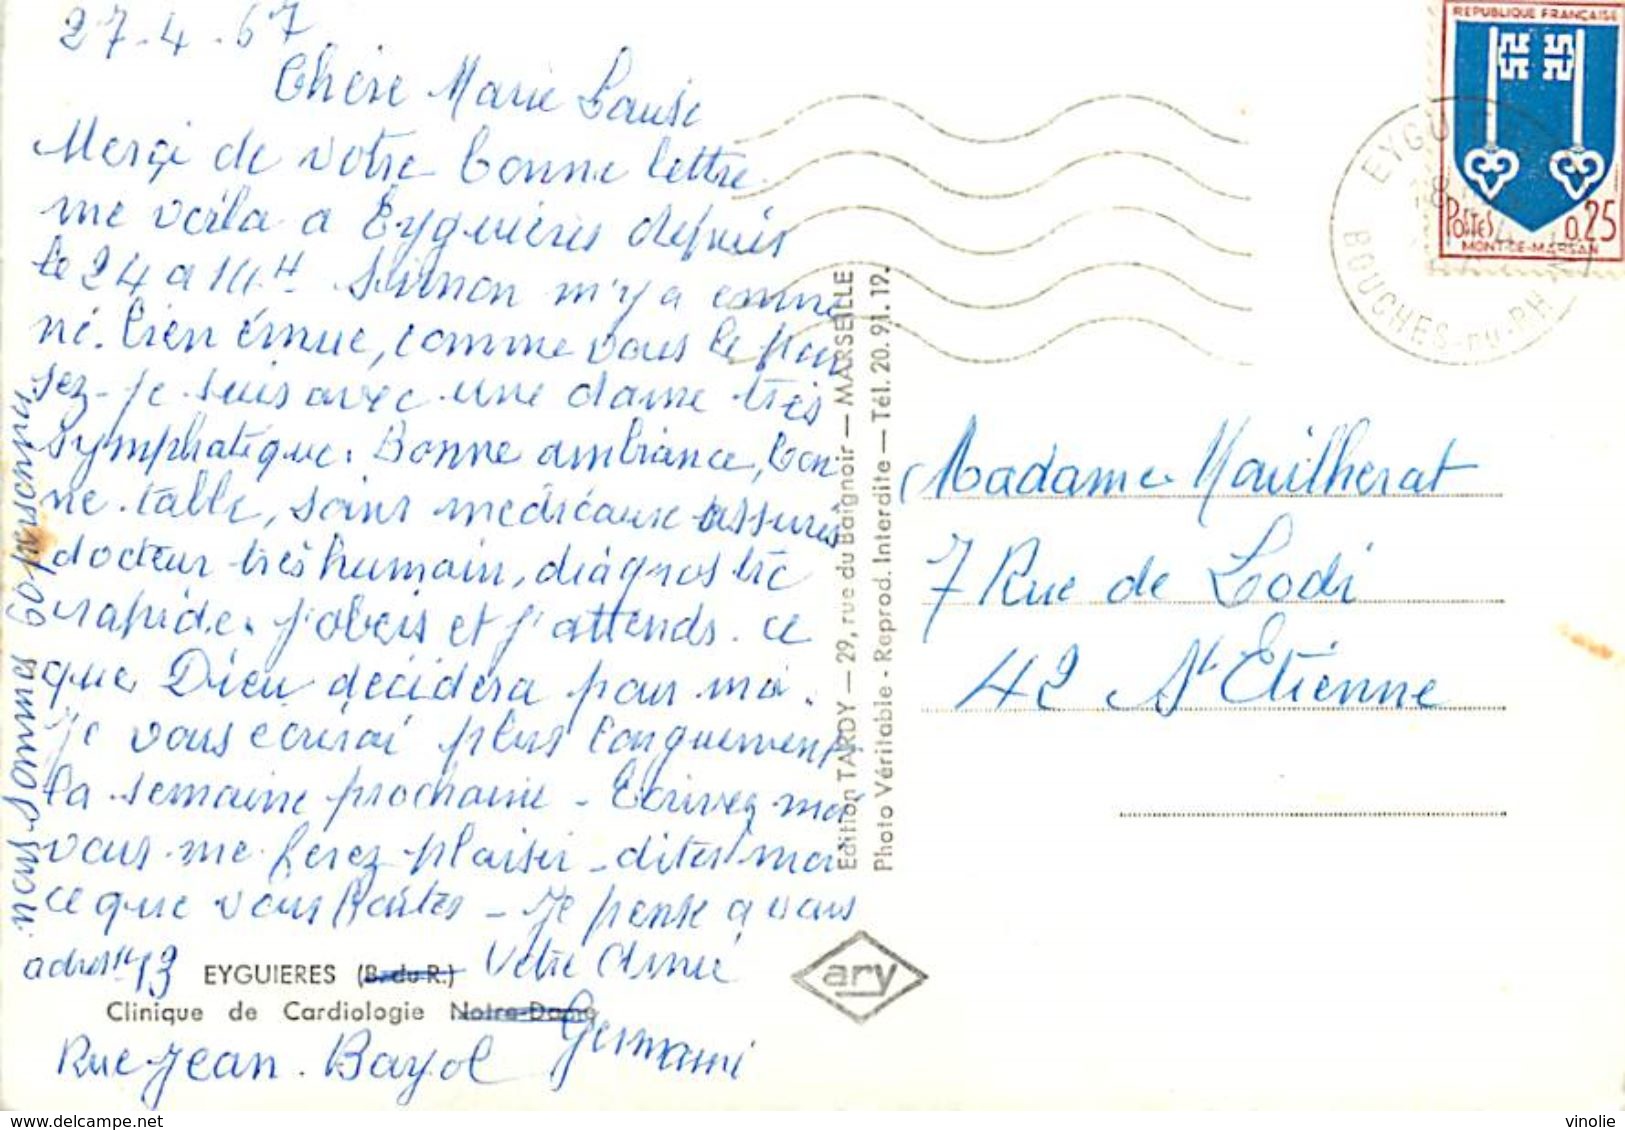 27-4-67
Chère Marie Louise
Merçi de votre bonne lettre
me voila a Eyguières depuis
le 24 a 14H. Simon m'y a emme
né. bien émue, comme vous le pen
sez - je suis avec une dame très
symphatique. Bonne ambiance, bon
ne table, soins médicaux assurés
docteur très humain, diagnostic
rapide. j'obeis et j'attends ce
que Dieu décidera pour moi.
Je vous écrirai plus longuement
la semaine prochaine - Ecrivez moi
vous me ferez plaisir - dites moi
ce que vous faites - Je pense a vous
Votre Amie
Germaine
nous sommes 60 personnes
adresse 13 EYGUIERES (B. du R.)
Clinique de Cardiologie Notre-Dame
Rue Jean Bayol
Edition TARDY — 29, rue du Baignoir — MARSEILLE
Photo Véritable - Reprod. Interdite — Tél. 20.91.12.
ary
REPUBLIQUE FRANÇAISE
POSTES 0,25
MONT-DE-MARSAN
EYGU
BOUCHES-DU-RH
Madame Mailherat
7 Rue de Lodi
42 St Etienne
www.delcampe.net
vinolie